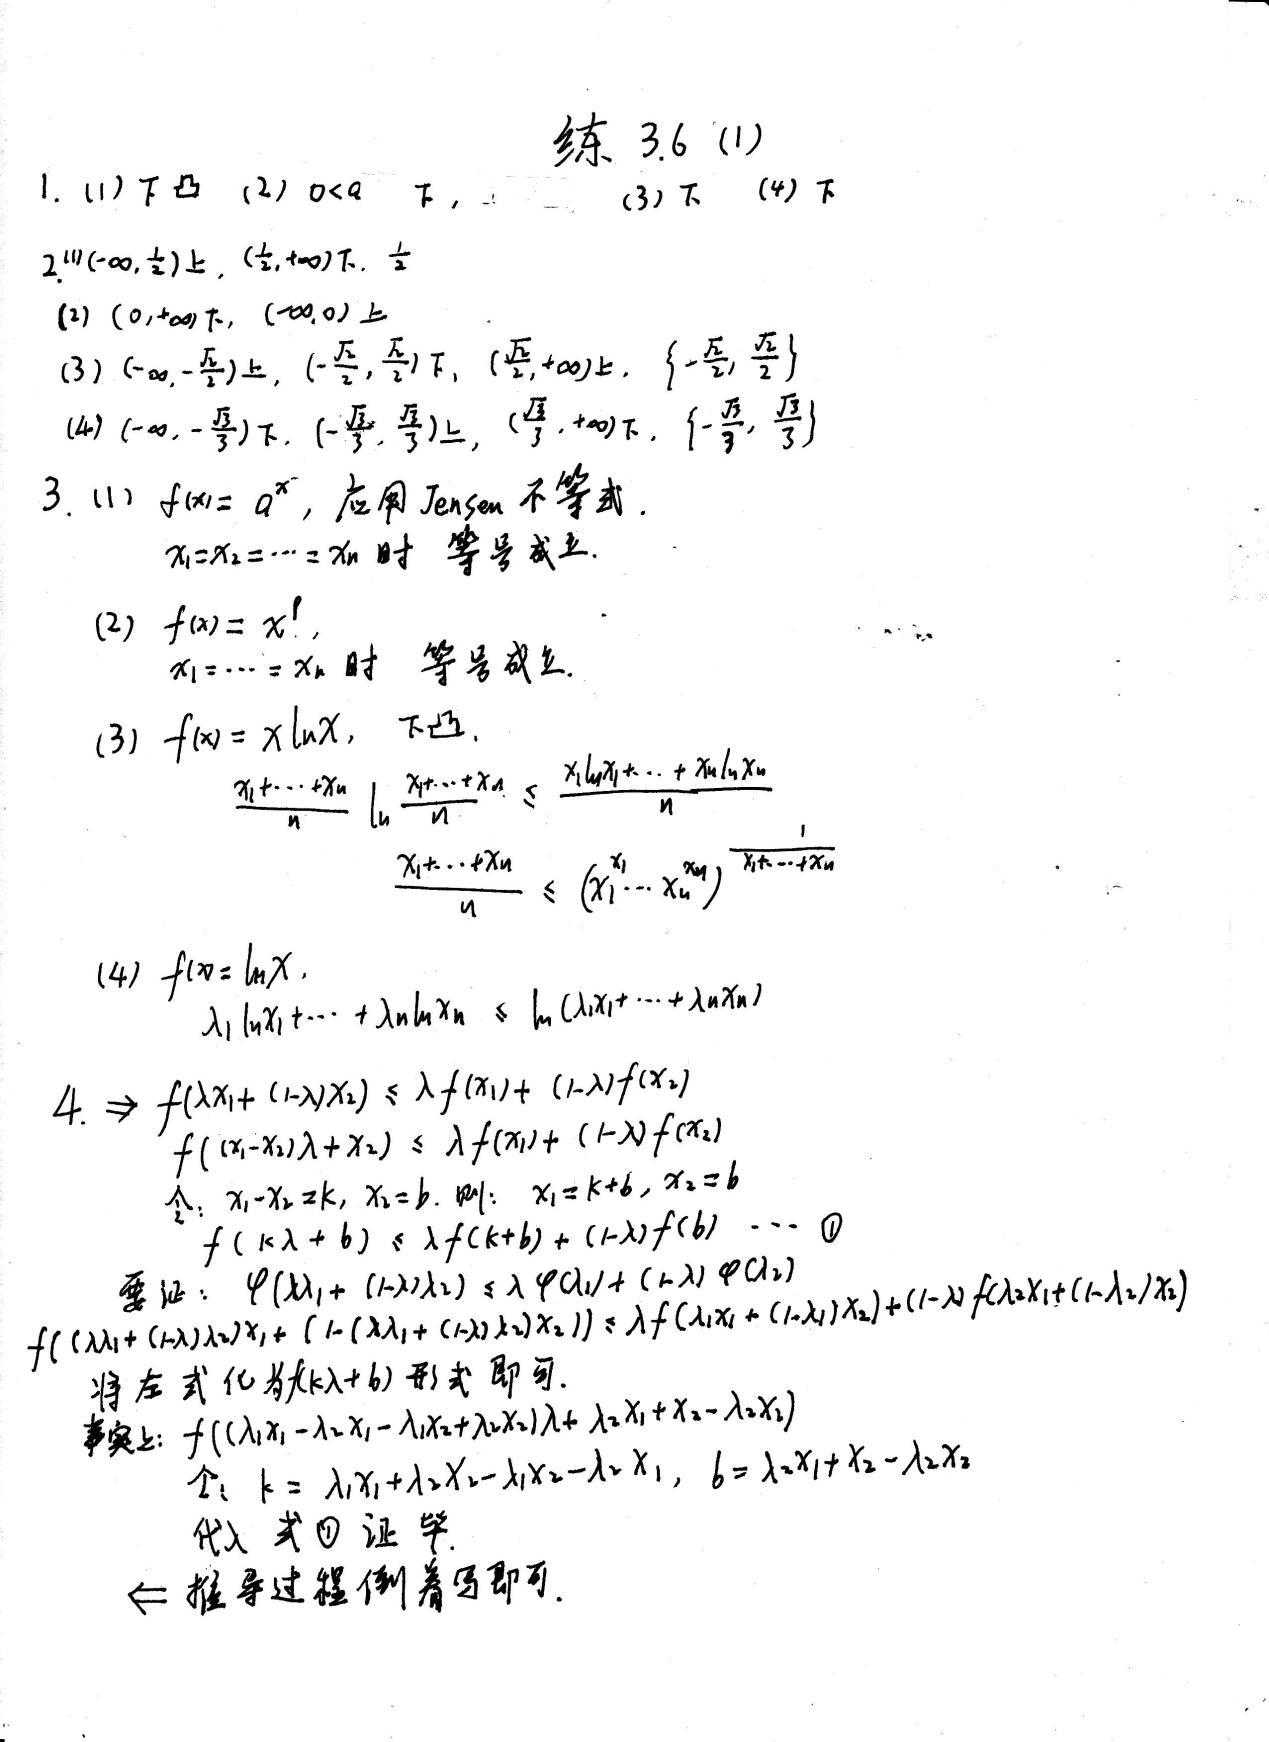 练 3.6 (1)
1. (1) 下凸 (2) 0<a 下, (3) 下 (4) 下
2.(1) (-∞, 1/2) 上, (1/2, +∞) 下. 1/2
(2) (0, +∞) 下, (-∞, 0) 上
(3) (-∞, -√2/2) 上, (-√2/2, √2/2) 下, (√2/2, +∞) 上. {-√2/2, √2/2}
(4) (-∞, -√3/3) 下. (-√3/3, √3/3) 上, (√3/3, +∞) 下. {-√3/3, √3/3}
3. (1) f(x) = a^x, 应用 Jensen 不等式.
x₁=x₂=⋯=xₙ 时 等号成立.
(2) f(x) = x^p,
x₁=⋯=xₙ 时 等号成立.
(3) f(x) = x ln x, 下凸.
(x₁+⋯+xₙ)/n ln (x₁+⋯+xₙ)/n ≤ (x₁lnx₁+⋯+xₙlnxₙ)/n
(x₁+⋯+xₙ)/n ≤ (x₁^x₁⋯xₙ^xₙ)^(1/(x₁+⋯+xₙ))
(4) f(x) = ln x.
λ₁lnx₁+⋯+λₙlnxₙ ≤ ln(λ₁x₁+⋯+λₙxₙ)
4. ⇒ f(λx₁+(1-λ)x₂) ≤ λf(x₁)+(1-λ)f(x₂)
f((x₁-x₂)λ+x₂) ≤ λf(x₁)+(1-λ)f(x₂)
令: x₁-x₂=k, x₂=b. 则: x₁=k+b, x₂=b
f(kλ+b) ≤ λf(k+b)+(1-λ)f(b) ⋯ ①
要证: φ(λλ₁+(1-λ)λ₂) ≤ λφ(λ₁)+(1-λ)φ(λ₂)
f((λλ₁+(1-λ)λ₂)x₁+(1-(λλ₁+(1-λ)λ₂)x₂)) ≤ λf(λ₁x₁+(1-λ₁)x₂)+(1-λ)f(λ₂x₁+(1-λ₂)x₂)
将左式化为f(kλ+b)形式即可.
事实上: f((λ₁x₁-λ₂x₁-λ₁x₂+λ₂x₂)λ+λ₂x₁+x₂-λ₂x₂)
令: k=λ₁x₁+λ₂x₂-λ₁x₂-λ₂x₁, b=λ₂x₁+x₂-λ₂x₂
代入式①证毕.
⇐ 推导过程倒着写即可.